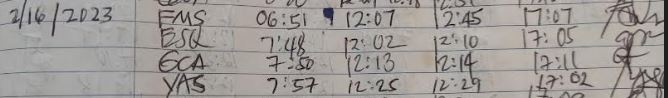 2/16/2023 EMS 06:51 12:07 12:45 17:07
ESQ 7:48 12:02 12:10 17:05
GCA 7:50 12:13 12:14 17:11
YAS 7:57 12:25 12:29 17:02